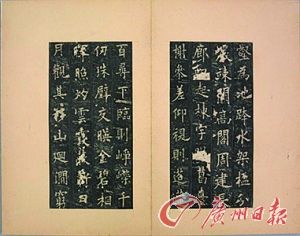 壑為池跨水架楹分
巖竦闕高閣周建
廊四起棟宇膠
榭參差仰視則迢
百尋下臨則崢嶸千
仞珠璧交映金碧相
暉照灼雲霞蔽虧日
月觀其移山迴澗窮
廣州日報